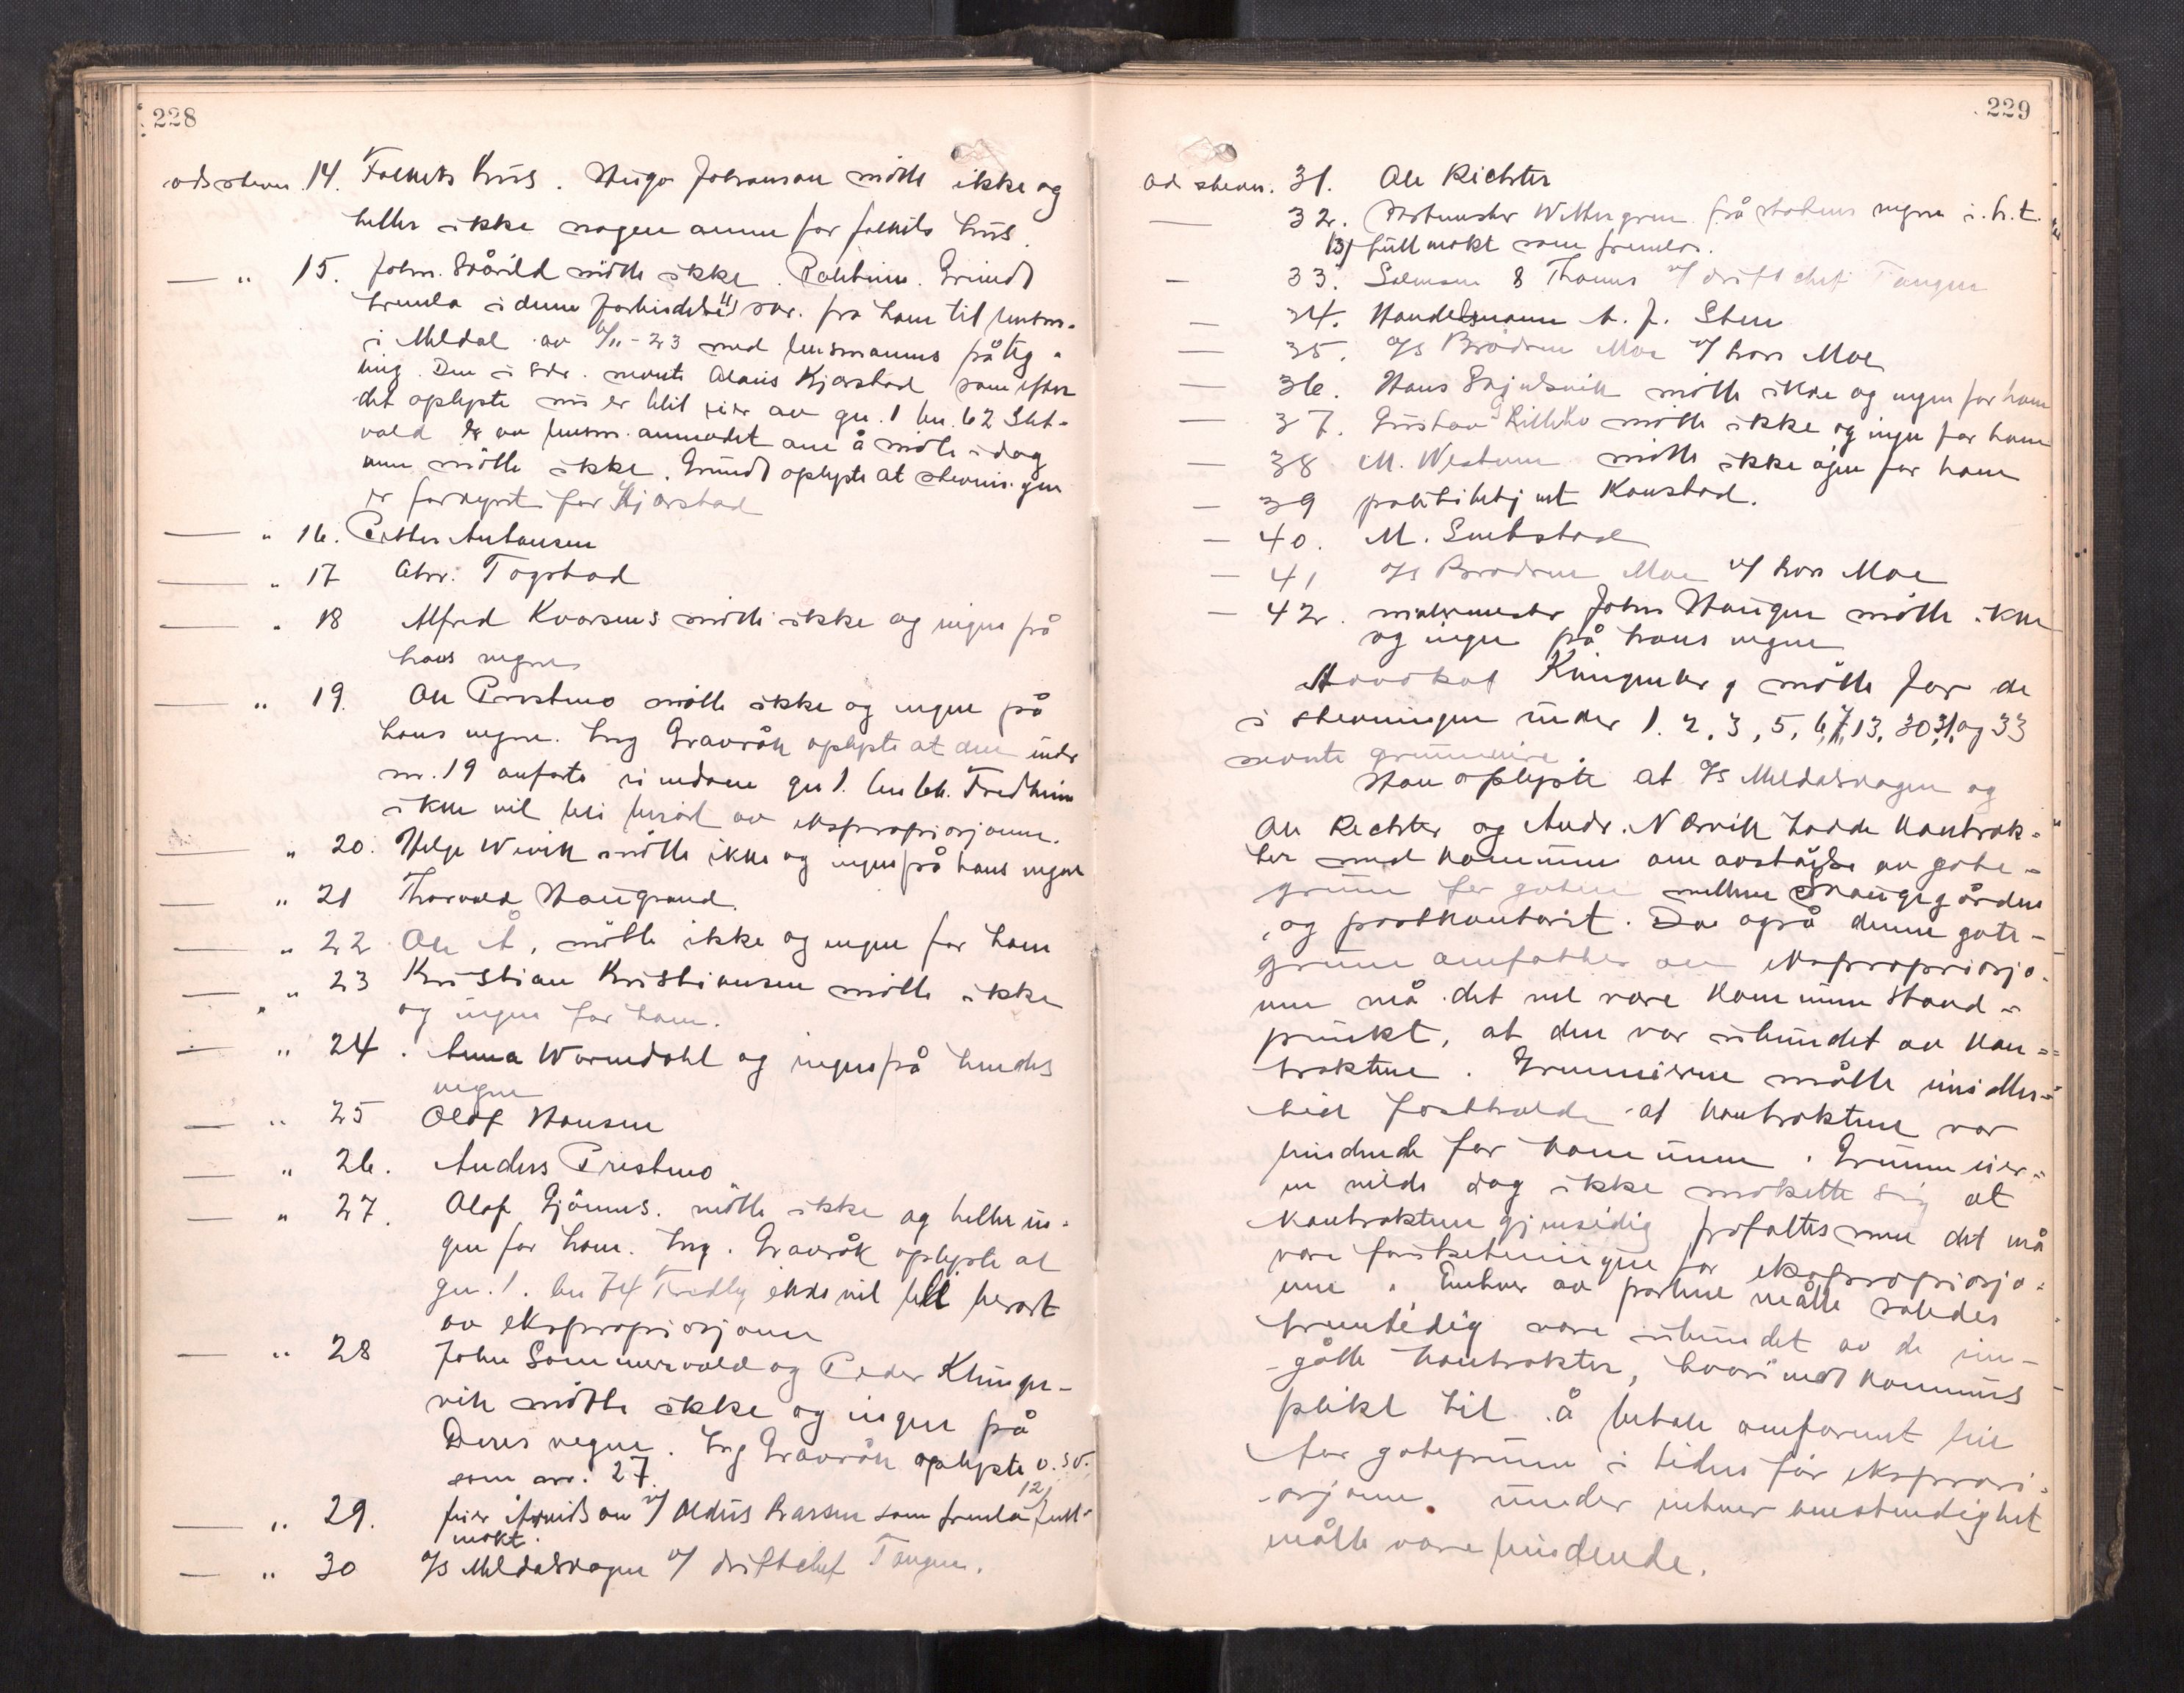 228
ad stevn. 14. Folkets hus. Hugo Johanson mötte ikke og
heller ikke nogen annen for folkets hus.
— " 15. John. Svårild mötte ikke. Grindt
fremla i denne forbindelse 11) skr. fra ham til lensm.
i Meldal av 6/11-23 med lensmannens påteg-
ning. Den i skr. nevnte Kjorstad som efter
det oplyste nu er blit eier av gn. 1 bn. 62 Slet-
vold er av lensm. anmodet om å möte idag
men mötte ikke. Grindt oplyste at stevningen
er forkynt for Kjorstad
— " 16. Petter Antonsen
— " 17 Chr. Togstad
— " 18 Alfred Kvorsnes mötte ikke og ingen på
hans vegne
— " 19. Ole Prestmo mötte ikke og ingen på
hans vegne. Ing Gravråk oplyste at den under
nr. 19 anförte eiendom gn 1. bn 66. Fredheim
ikke vil bli berört av ekspropriasjonen.
" 20. Helge Wevik mötte ikke og ingen på hans vegne
— " 21 Thorvald Haugrønd.
— " 22 Ole Å, mötte ikke og ingen for ham
— " 23 Kristian Kristiansen mötte ikke
og ingen for ham.
— " 24. Anna Wormdahl og ingen på hendes
vegne
— " 25 Olaf Hansen
— " 26. Anders Prestmo
— " 27. Olaf Gjönnes. mötte ikke og heller in-
gen for ham. Ing. Gravråk oplyste at
gn. 1. bn 74 Fredly ikke vil bli berört
av ekspropriasjonen
— " 28 John Sommervold og Peder Klinge-
vik mötte ikke og ingen på
Deres vegne. Ing Gravråk oplyste o.s.v.
som nr. 27.
— " 29. v/ Larsen som fremla 12) full-
makt.
— " 30 A/S Meldalskogen v/ driftchef Tangen.
229
ad stevn. 31. Ole Richter
— 32. Wettergren på statens vegne i. h. t.
13) fullmakt som fremla.
— 33. Salvesen & Thams v/ driftchef Tangen
— 34. Handelsmann A. J. Sten
— 35. A/S Brödrene Moe v/ Lars Moe
— 36. Hans mötte ikke og ingen for ham
— 37. Gustav mötte ikke og ingen for ham
— 38 M. Westum mötte ikke ingen for ham
— 39 politibetjent Kanstad.
— 40. M. Smebstad
— 41 A/S Brödrene Moe v/ Lars Moe
— 42. malermester John Haugen mötte ikke
og ingen på hans vegne
Advokat Klingenberg mötte for de
i stevningen under 1. 2, 3, 5, 6, 7, 13, 30, 31, og 33
nevnte grunneiere.
Han oplyste at A/S Meldalskogen og
Ole Richter og Andr. Nervik hadde kontrak-
ter med kommunen om avståelse av gate-
grunn for gaten mellem Haugegården
og postkontoret. Da også denne gate-
grunn omfattes av ekspropriasjo-
nen må det vel være kommunens stand-
punkt, at den var ubundet av kon-
traktene. Grunneierne måtte imidler-
tid fastholde at kontraktene var
bindende for kommunen. Grunneier-
ne vilde dog ikke motsette sig at
kontraktene gjensidig frafaltes men det må
være forutsetningene for ekspropriasjo-
nen. Enhver av partene måtte således
fremtidig være ubundet av de inn-
gåtte kontrakter, hvorimot kommunens
plikt til å betale omforent leie
for gategrunn i tiden för ekspropri-
asjonen under enhver omstendighet
måtte være bindende.